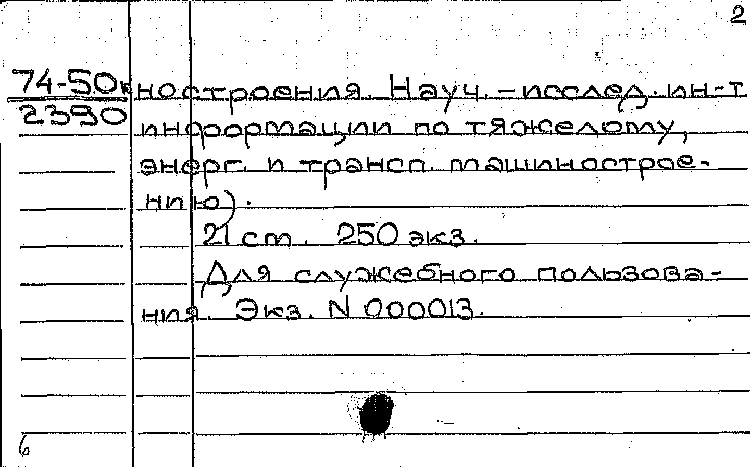 2
74-50к
2390
ностроения. Науч.-исслед. ин-т
информации по тяжелому,
энерг. и трансп. машинострое-
нию).
21 ст. 250 экз.
Для служебного пользова-
ния. Экз. N 000013.